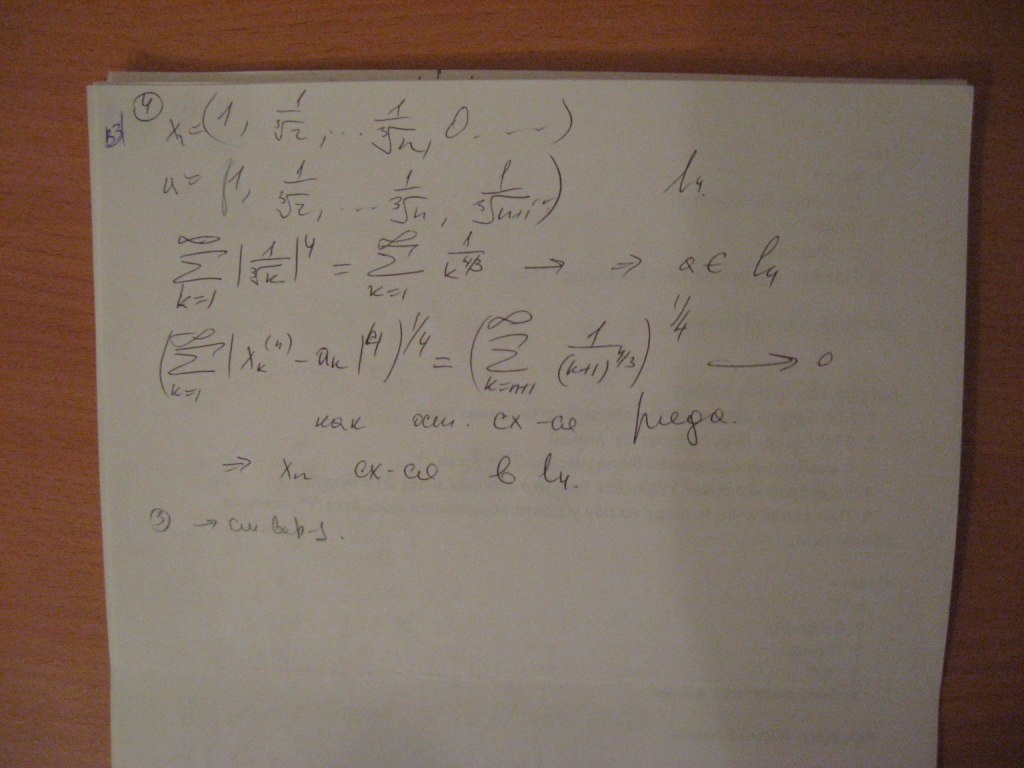 ④ xₙ = (1, 1/∛2, ... 1/∛n, 0. ...)
a = (1, 1/∛2, ... 1/∛n, 1/∛(n+1) ..) l₄.
∑_{k=1}^{∞} |1/∛k|⁴ = ∑_{k=1}^{∞} 1/k^{4/3} → ⇒ a ∈ l₄
(∑_{k=1}^{∞} |x_k^{(n)} - a_k|⁴)^{1/4} = (∑_{k=n+1}^{∞} 1/(k+1)^{4/3})^{1/4} → 0
как сх-ся ряда.
⇒ xₙ сх-ся в l₄.
③ → см. вар-1.